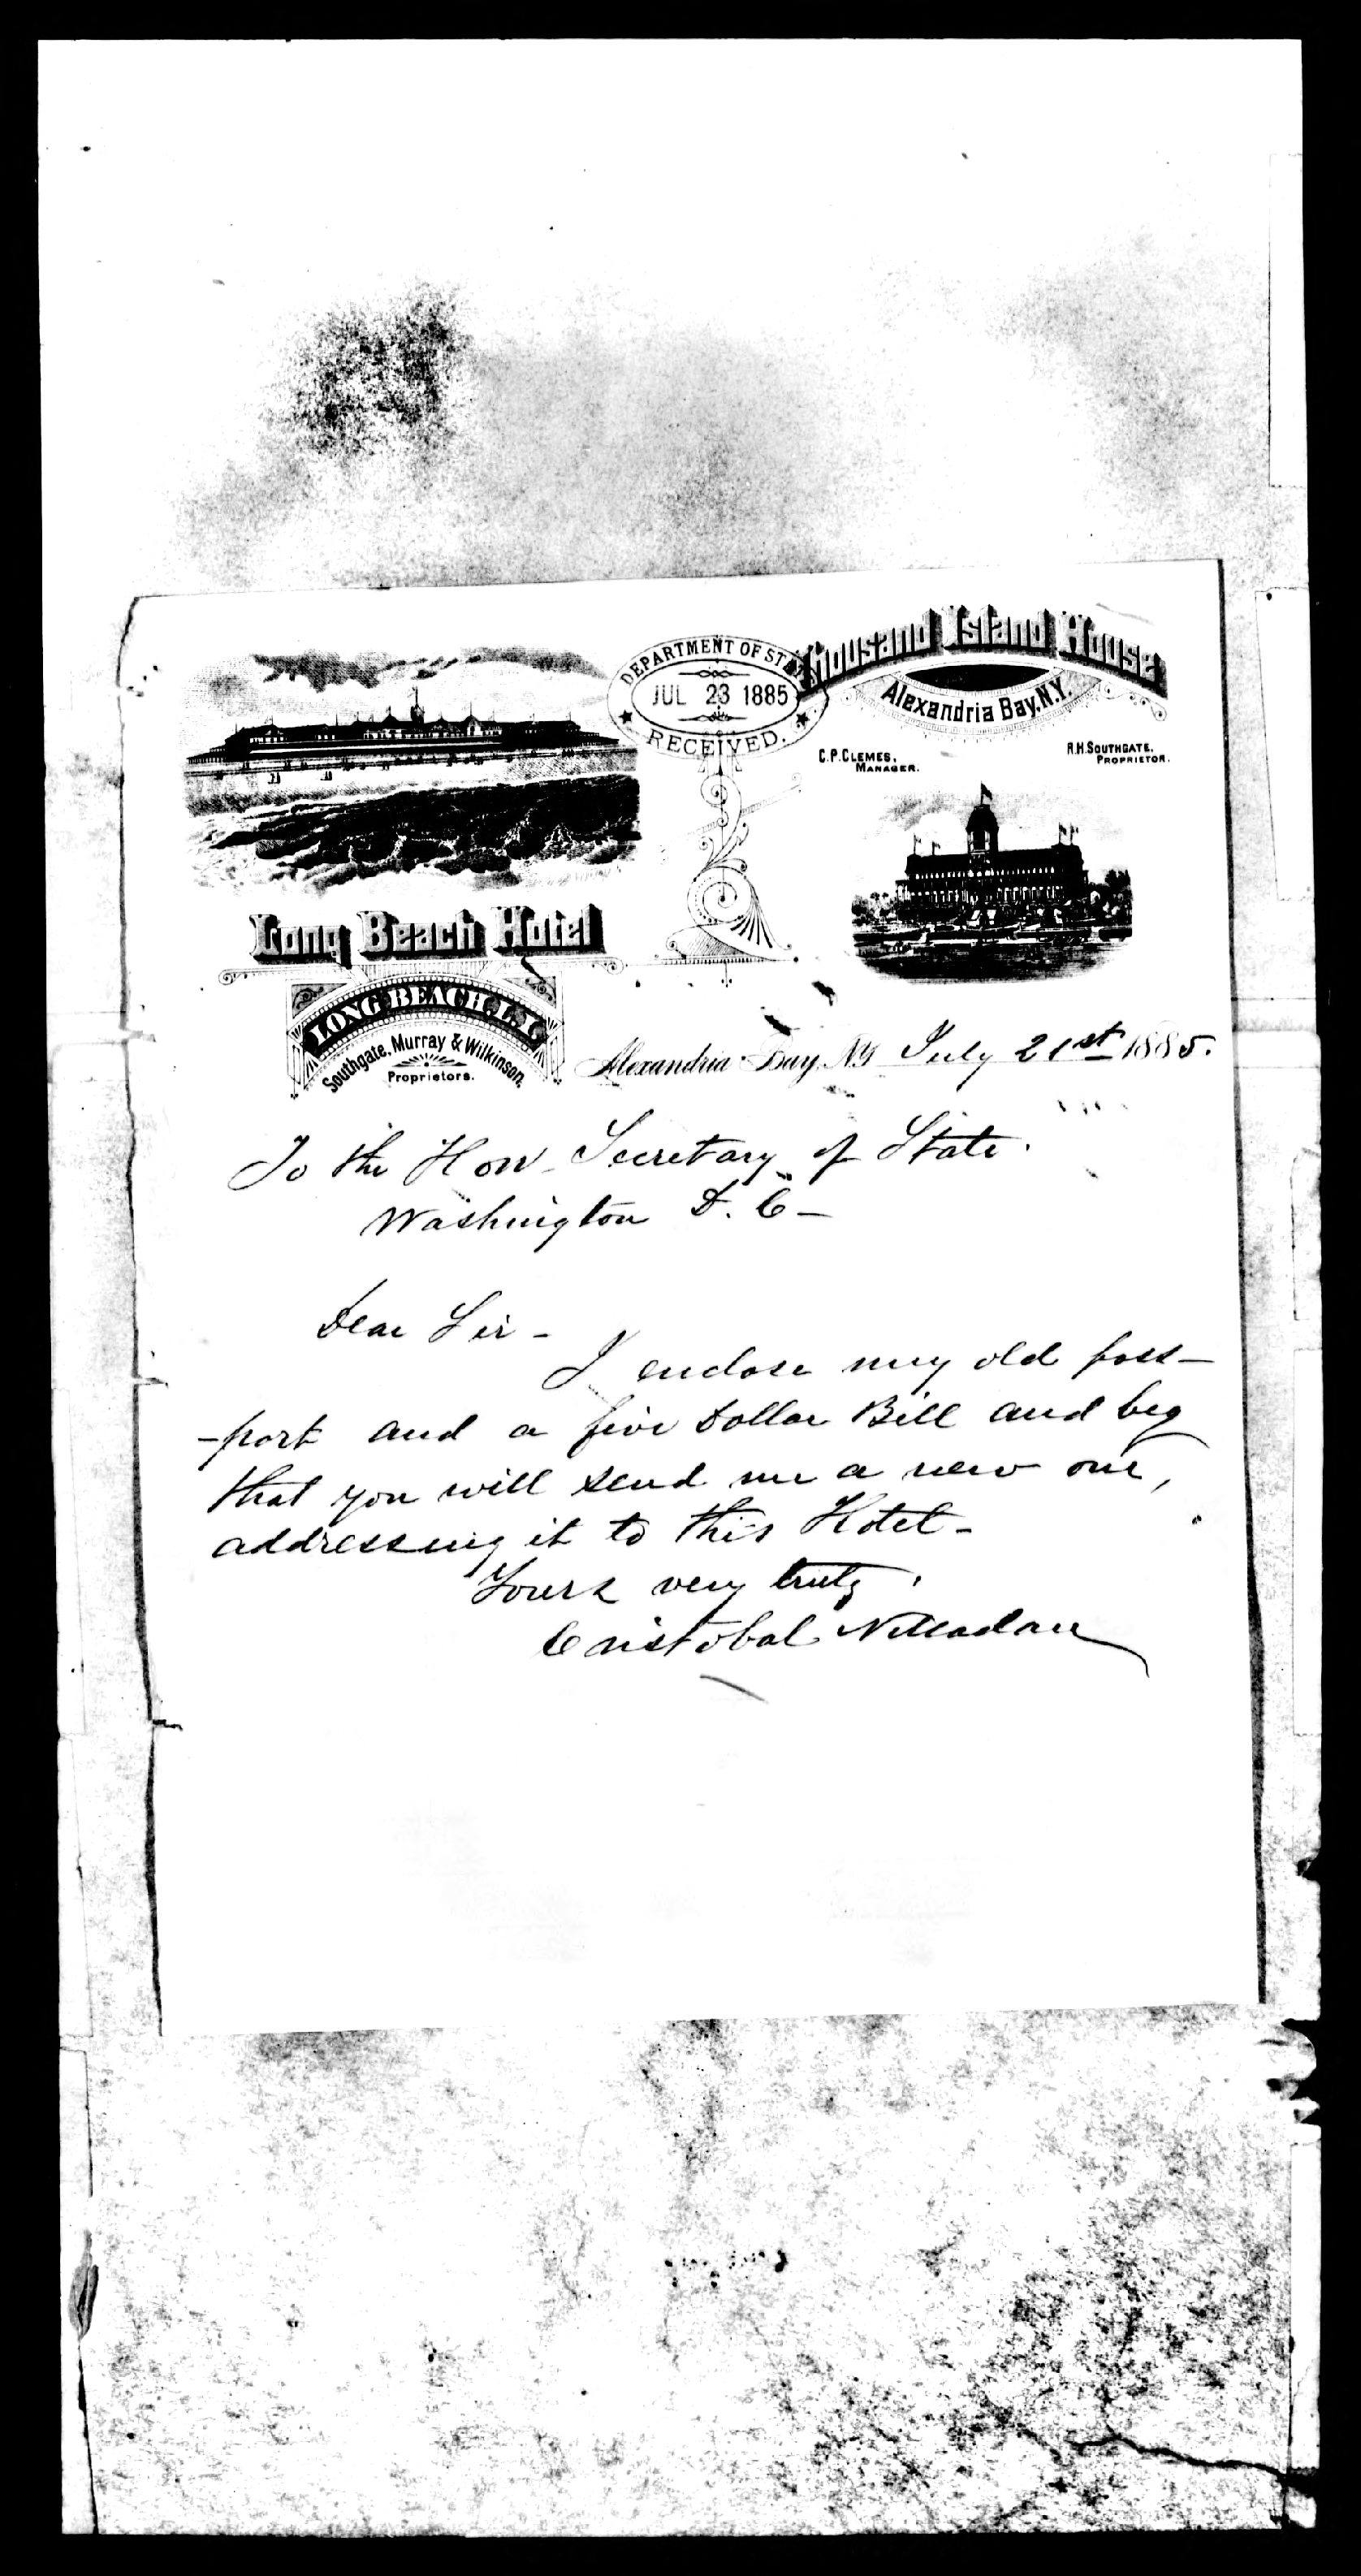 DEPARTMENT OF STATE
JUL 23 1885
RECEIVED.
Thousand Island House
Alexandria Bay. N.Y.
C.P. CLEMES. MANAGER.
R.H. SOUTHGATE. PROPRIETOR.
Long Beach Hotel
LONG BEACH, L.I.
Southgate, Murray & Wilkinson,
Proprietors.
Alexandria Bay, N.Y. July 21st 1885.
To the Hon. Secretary of State.
Washington D. C -
Dear Sir -
I enclose my old pass-
-port and a five Dollar Bill and beg
that you will send me a new one,
addressing it to this Hotel -
Yours very truly,
Cristobal